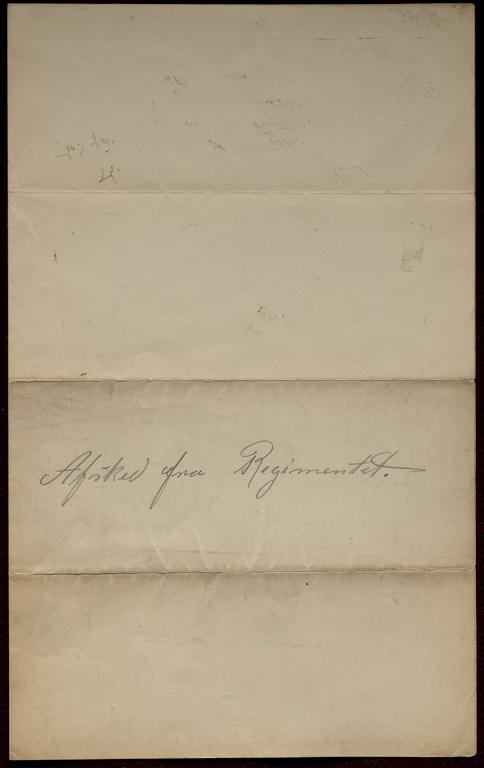 Afsked fra Regimentet.